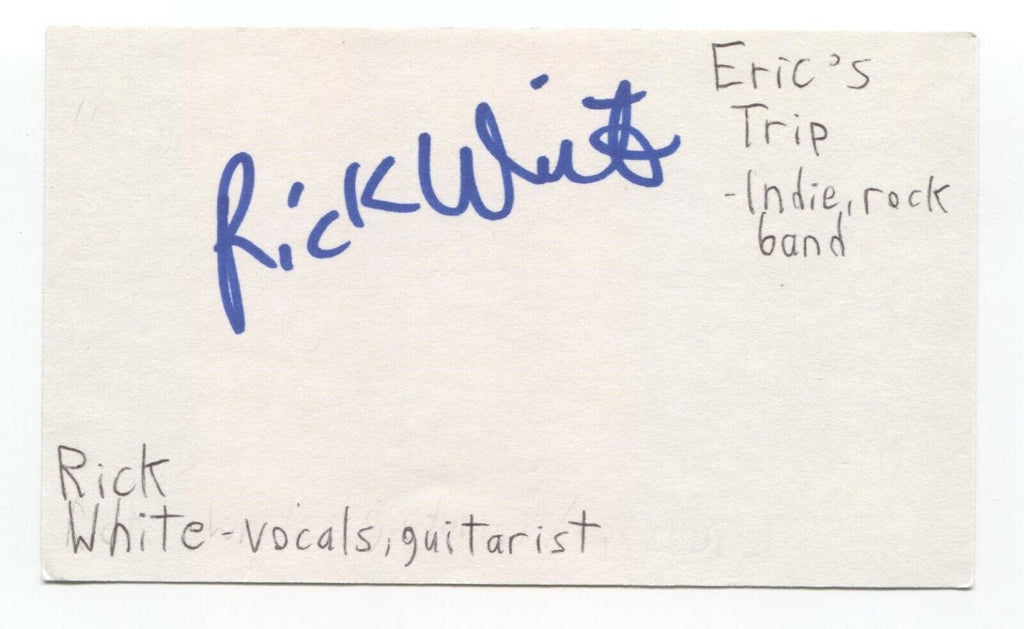 Rick White
Eric's
Trip
-Indie, rock
band
Rick
White-vocals, guitarist